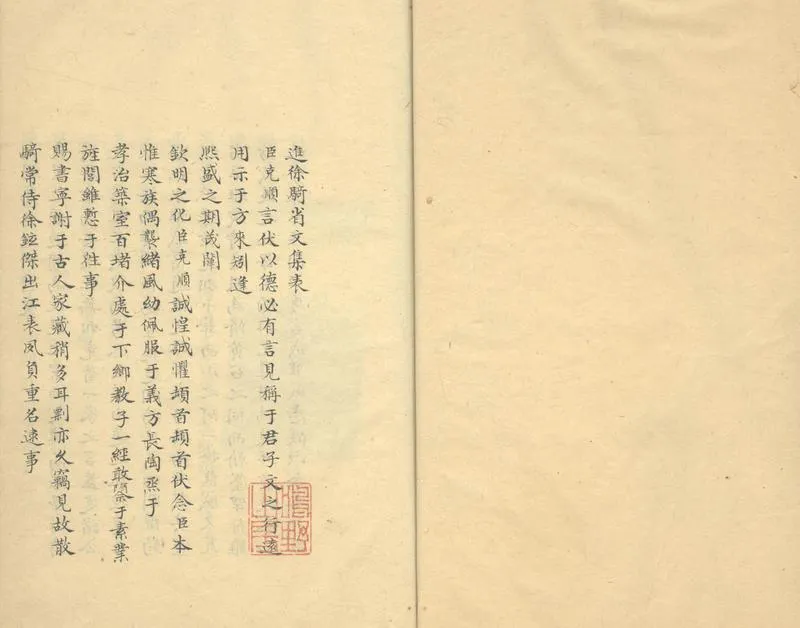 進徐騎省文集表
臣克順言伏以德必有言見稱于君子文之行遠
用示于方來矧逢
熙盛之期茂闡
欽明之化臣克順誠惶誠懼頓首頓首伏念臣本
惟寒族偶襲緒風幼佩服于義方長陶烝于
孝治築室百堵介處于下鄉教子一經敢隳于素業
旌閭雖慙于往事
賜書寧謝于古人家藏稍多耳剽亦久竊見故散
騎常侍徐鉉傑出江表夙負重名逮事